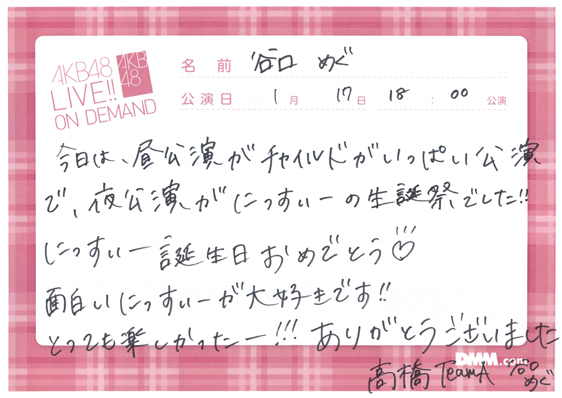 AKB48
LIVE!!
ON DEMAND
AKB
48
名前 谷口 めぐ
公演日 1月 17日 18:00 公演
今日は、昼公演がチャイルドがいっぱい公演
で、夜公演がにっすぃーの生誕祭でした!!
にっすぃー誕生日おめでとう♡
面白いにっすぃーが大好きです!!
とっても楽しかったー!!! ありがとうございました
DMM.com
高橋TeamA 谷口
めぐ